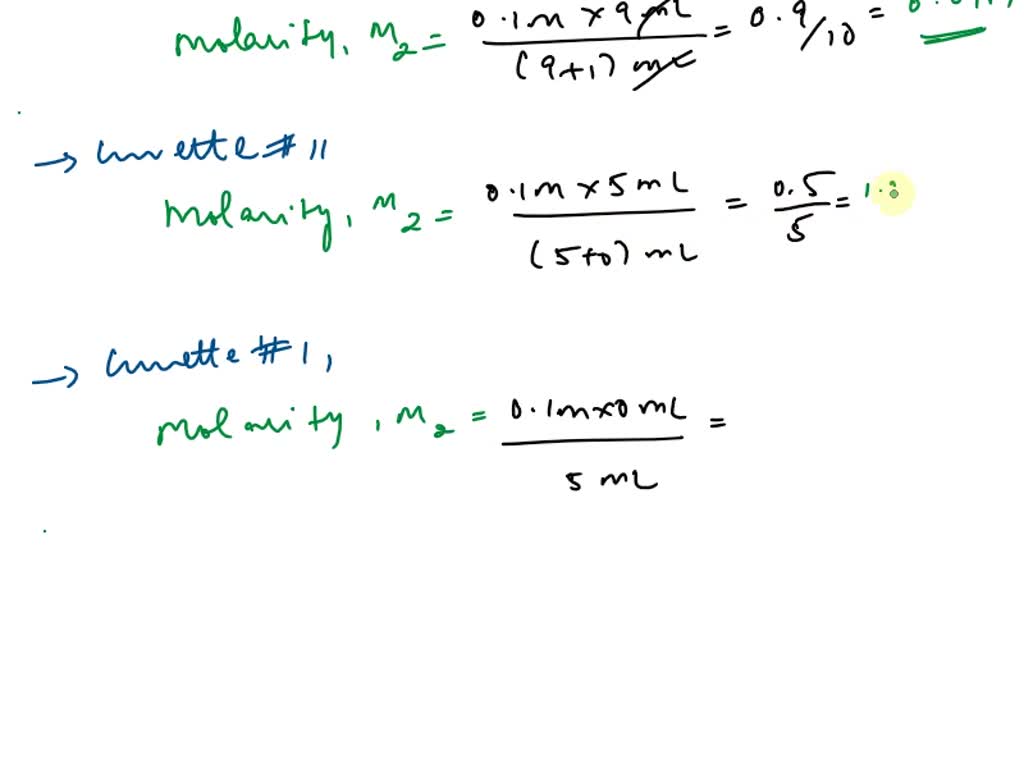 molarity, M₂ = 0.1M × 9 mL / (9+1) mL = 0.9/10 =
→ Cuvette #11
Molarity, M₂ = 0.1M × 5 mL / (5+0) mL = 0.5/5 =
→ Cuvette #1,
Molarity, M₂ = 0.1M×0 mL / 5 mL =